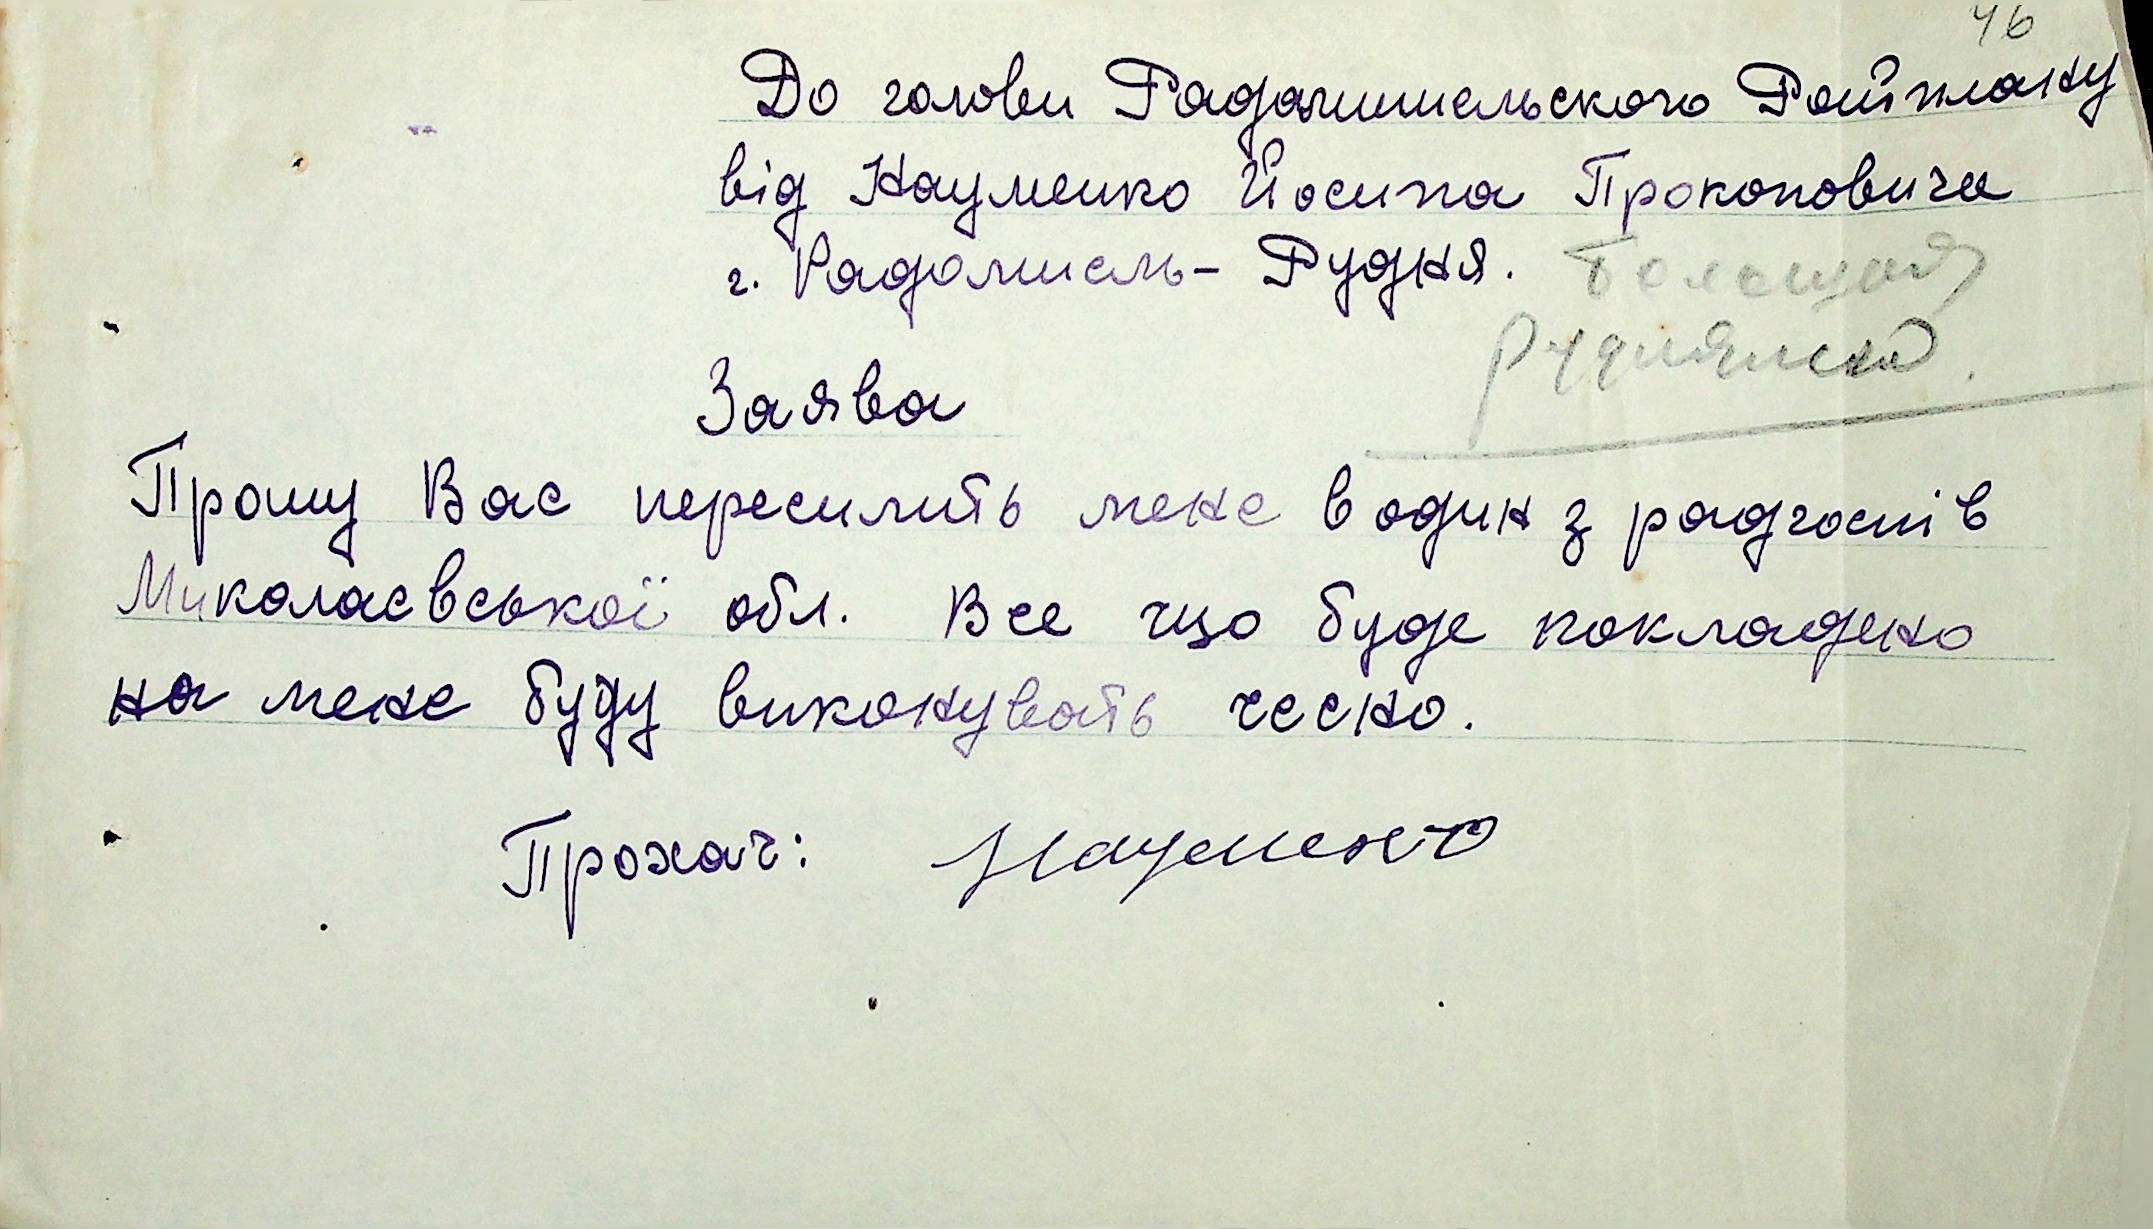 46
До голови Радомишельского Райплану
від Науменко Йосипа Прокоповича
г. Радомисль- Рудня.
Заява
Прошу Вас пересилить мене в один з радгоспів
Миколаєвської обл. Все що буде покладено
на мене буду виконувать чесно.
Прохач: Науменко